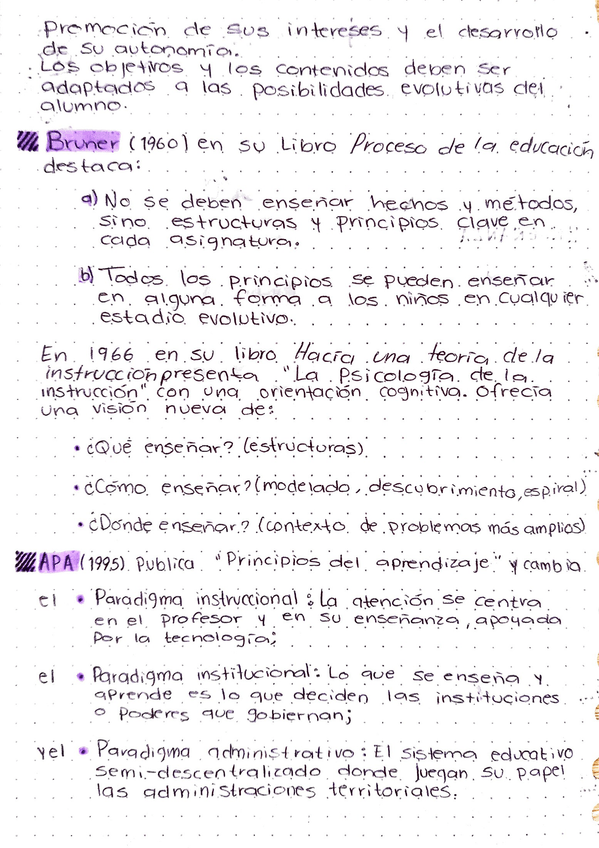 Promoción de sus intereses y el desarrollo
de su autonomía.
Los objetivos y los contenidos deben ser
adaptados a las posibilidades evolutivas del
alumno.
Bruner (1960) en su Libro Proceso de la educación
destaca:
a) No se deben enseñar hechos y métodos,
sino estructuras y principios clave en
cada asignatura.
b) Todos los principios se pueden enseñar
en alguna forma a los niños en cualquier
estadio evolutivo.
En 1966 en su libro Hacia una teoría de la
instrucción presenta "La Psicología de la
instrucción" con una orientación cognitiva. Ofrecía
una visión nueva de:
• ¿Qué enseñar? (estructuras)
• ¿Cómo enseñar? (modelado, descubrimiento, espiral)
• ¿Dónde enseñar? (contexto de problemas más amplios)
APA (1995) Publica "Principios del aprendizaje" y cambia
el • Paradigma instruccional: La atención se centra
en el profesor y en su enseñanza, apoyada
por la tecnología;
el • Paradigma institucional: Lo que se enseña y
aprende es lo que deciden las instituciones
o poderes que gobiernan;
y el • Paradigma administrativo: El sistema educativo
semi-descentralizado donde juegan su papel
las administraciones territoriales.